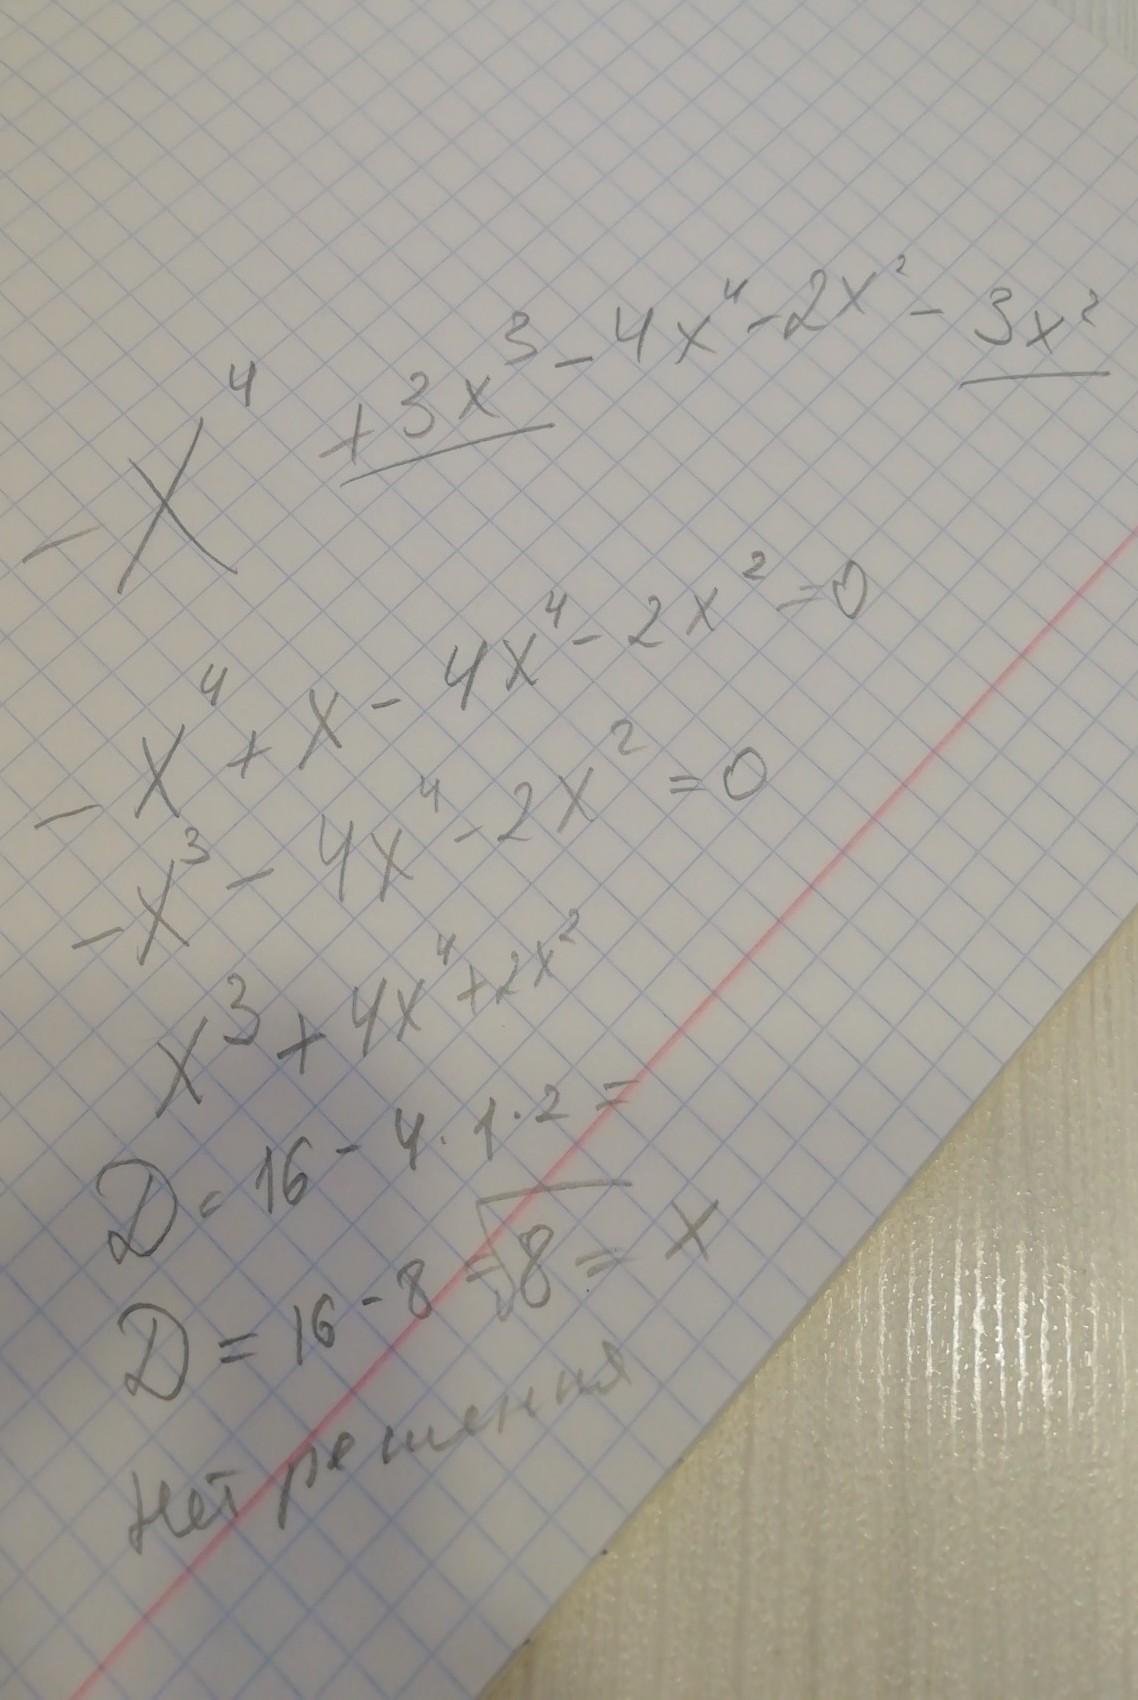 -x⁴ +3x³ - 4x⁴ - 2x² - 3x²
-x⁴ + x - 4x⁴ - 2x² = 0
-x³ - 4x⁴ - 2x² = 0
x³ + 4x⁴ + 2x²
D = 16 - 4 · 1 · 2 =
D = 16 - 8 = √8 = x
Нет решения